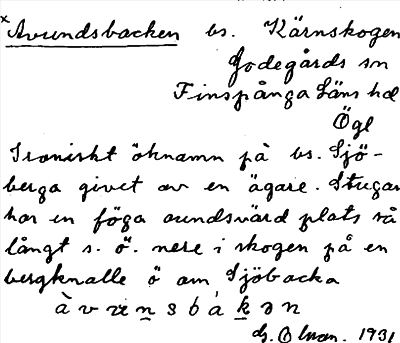 x Avundsbacken bs. Kärnskogen
Godegårds sn
Finspånga Läns hd
Ögl
Ironiskt öknamn på bs. Sjö-
berga givet av en ägare. Stugan
har en föga avundsvärd plats så
långt s. ö. nere i skogen på en
bergknalle ö om Sjöbacka
1931